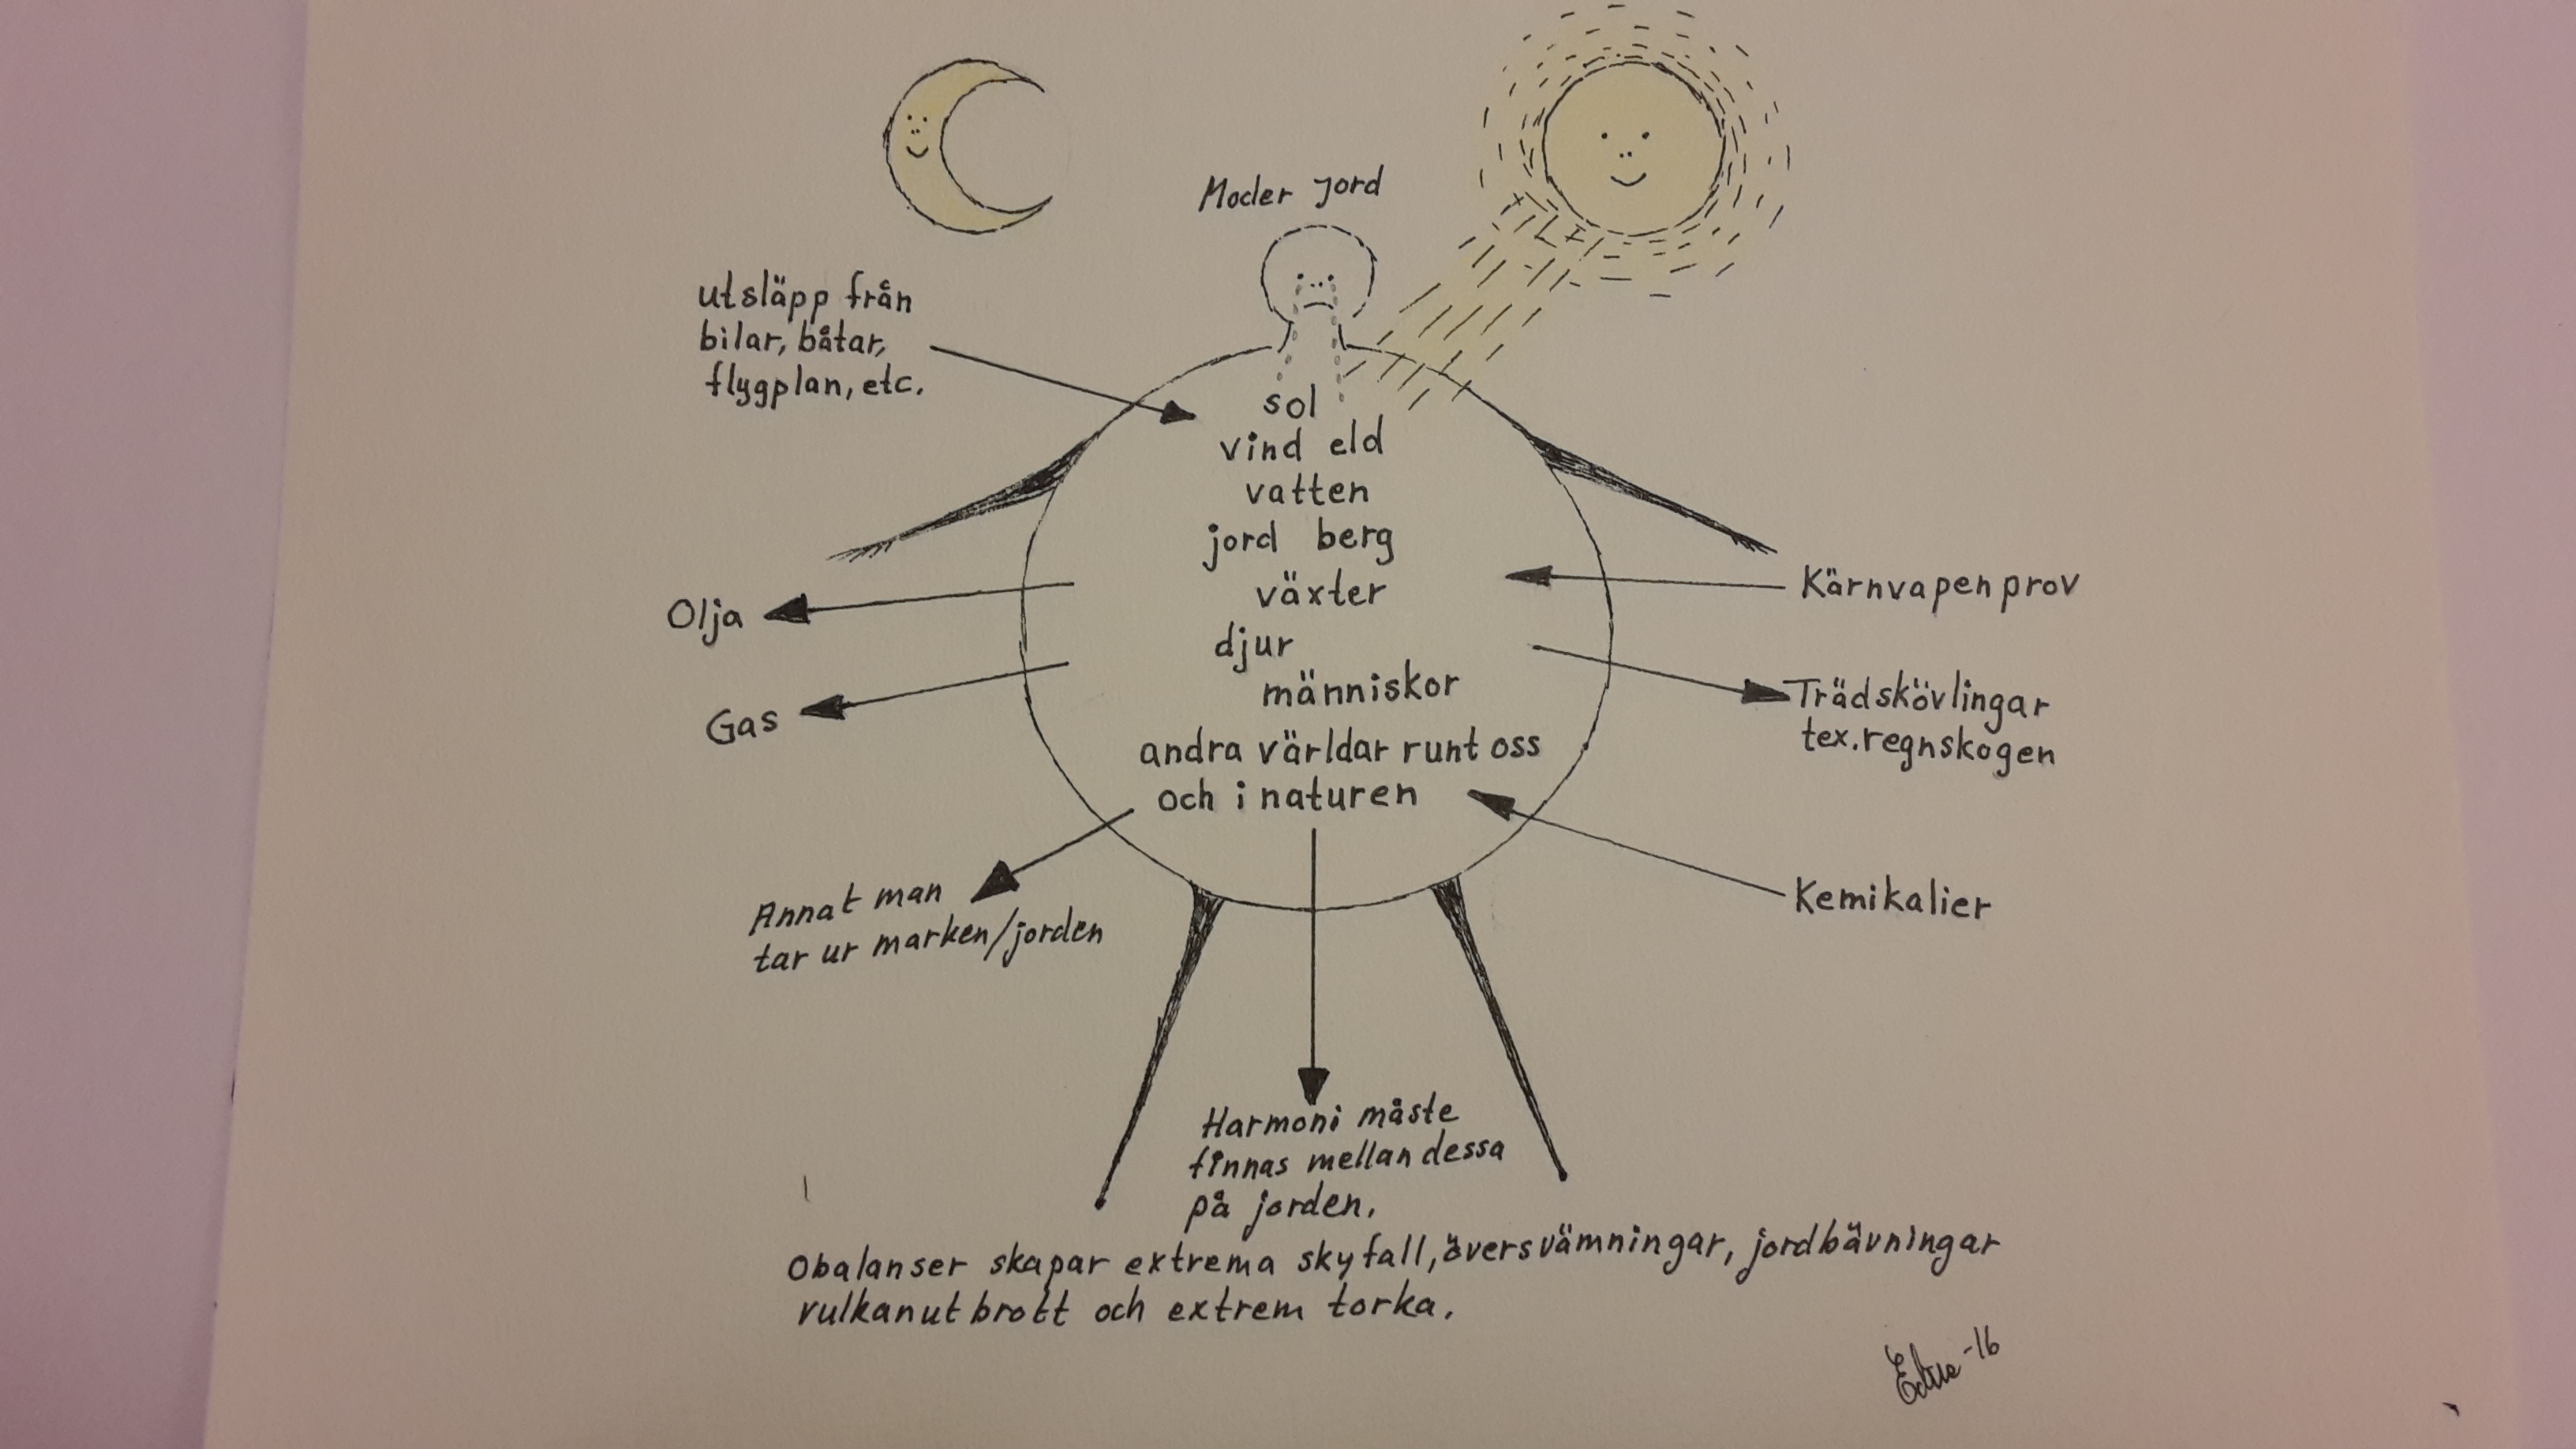 Moder jord
utsläpp från
bilar, båtar,
flygplan, etc.
sol
vind eld
vatten
jord berg
växter
djur
människor
andra världar runt oss
och i naturen
Olja
Gas
Annat man
tar ur marken/jorden
Kärnvapenprov
Trädskövlingar
tex. regnskogen
Kemikalier
Harmoni måste
finnas mellan dessa
på jorden.
Obalanser skapar extrema skyfall, översvämningar, jordbävningar
vulkanutbrott och extrem torka.
-16